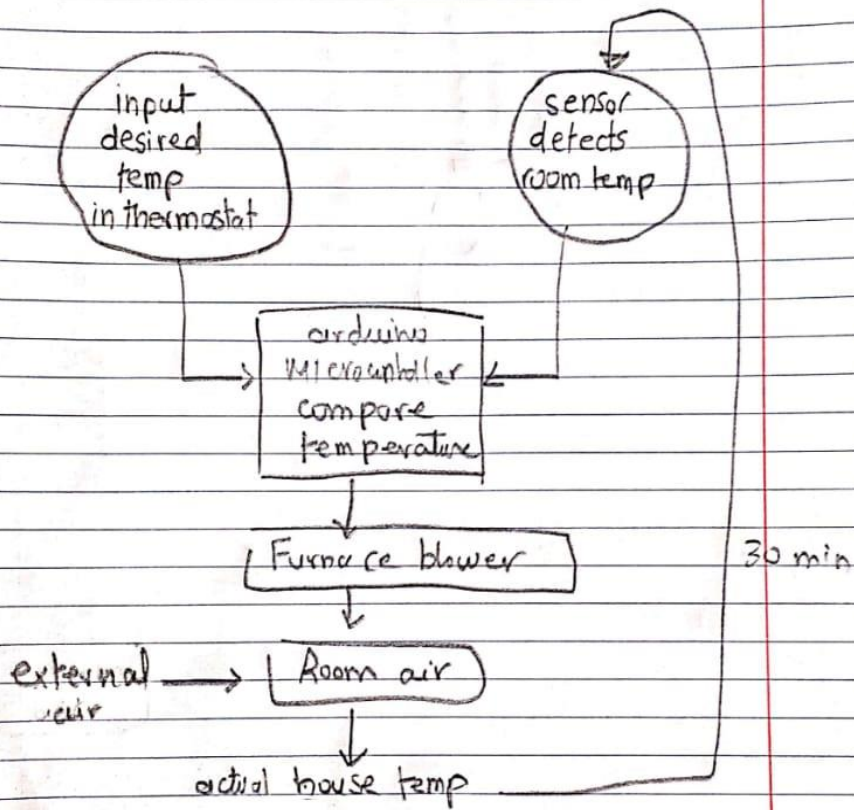 input
desired
temp
in thermostat
sensor
detects
room temp
arduino
Micrountoller
compare
temperature
Furnace blower
30 min
external
air
Room air
actual house temp